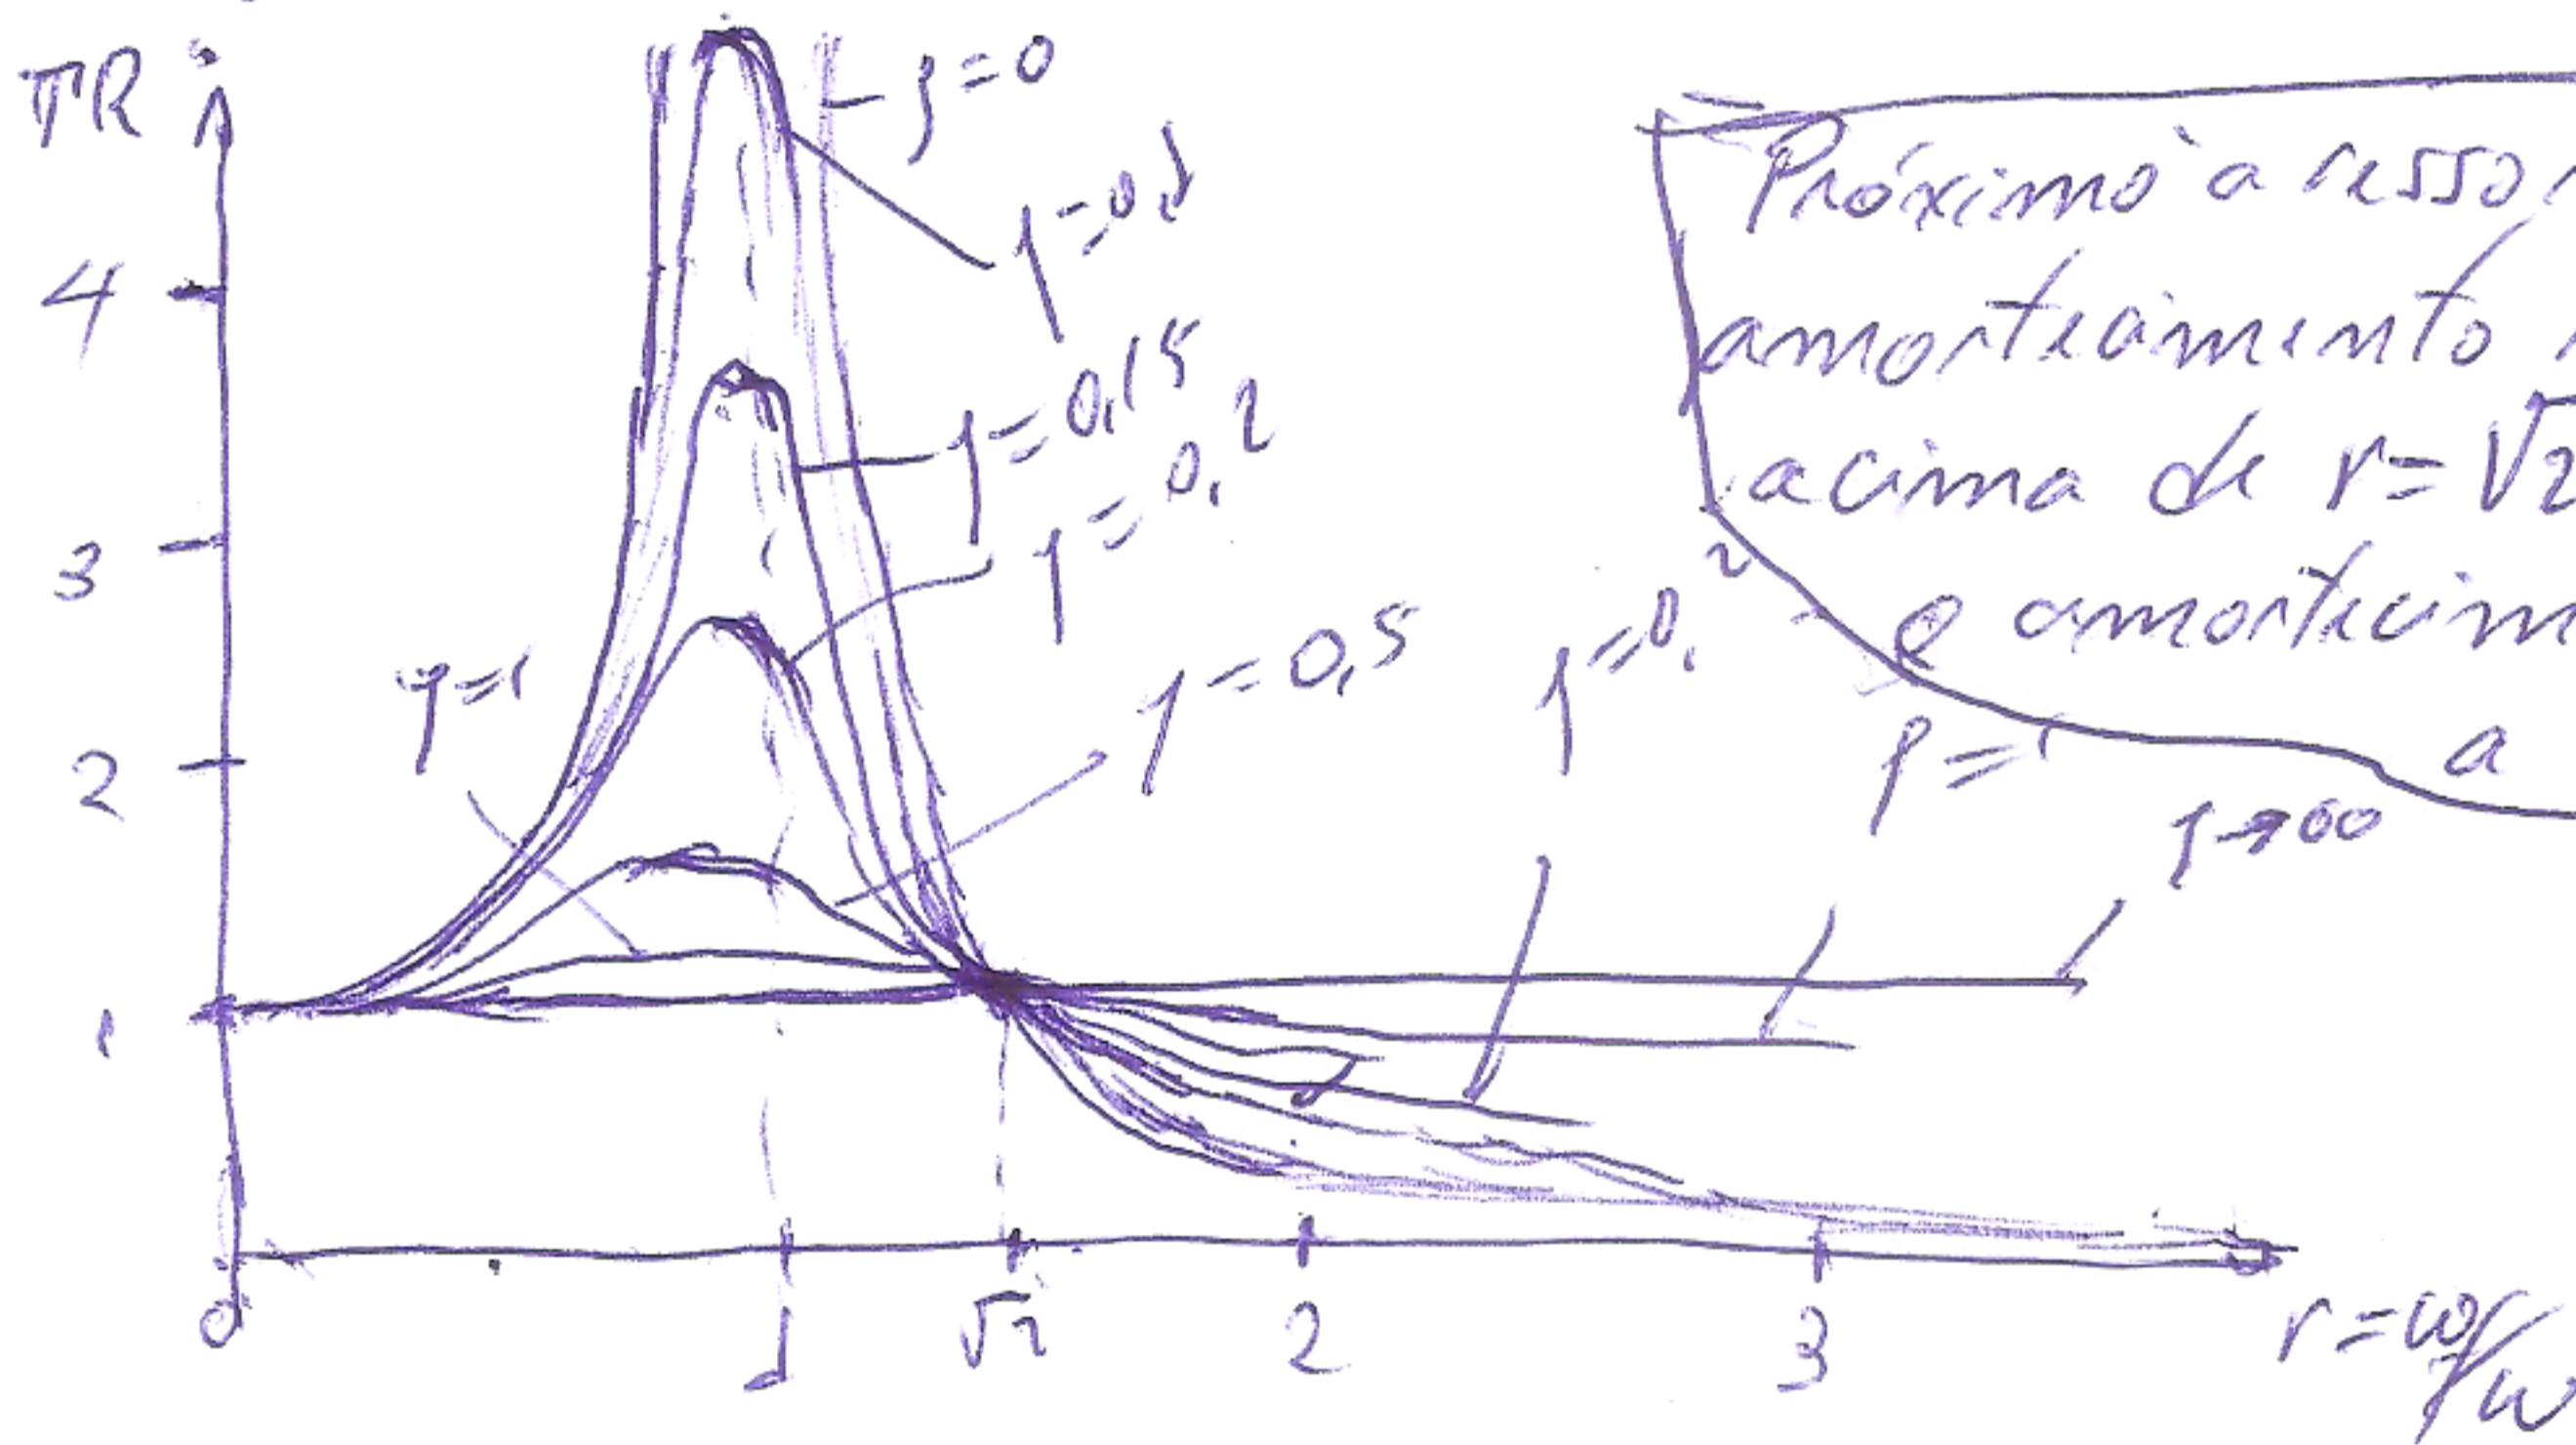 TR
ζ=0
ζ=0,1
4
ζ=0,15
ζ=0,2
3
ζ=1
ζ=0,5
ζ=0,2
2
ζ=1
ζ→∞
1
0
1
√2
2
3
r=ωf/ω
Próximo à resso
amortecimento
acima de r=√2
e amortecim
a